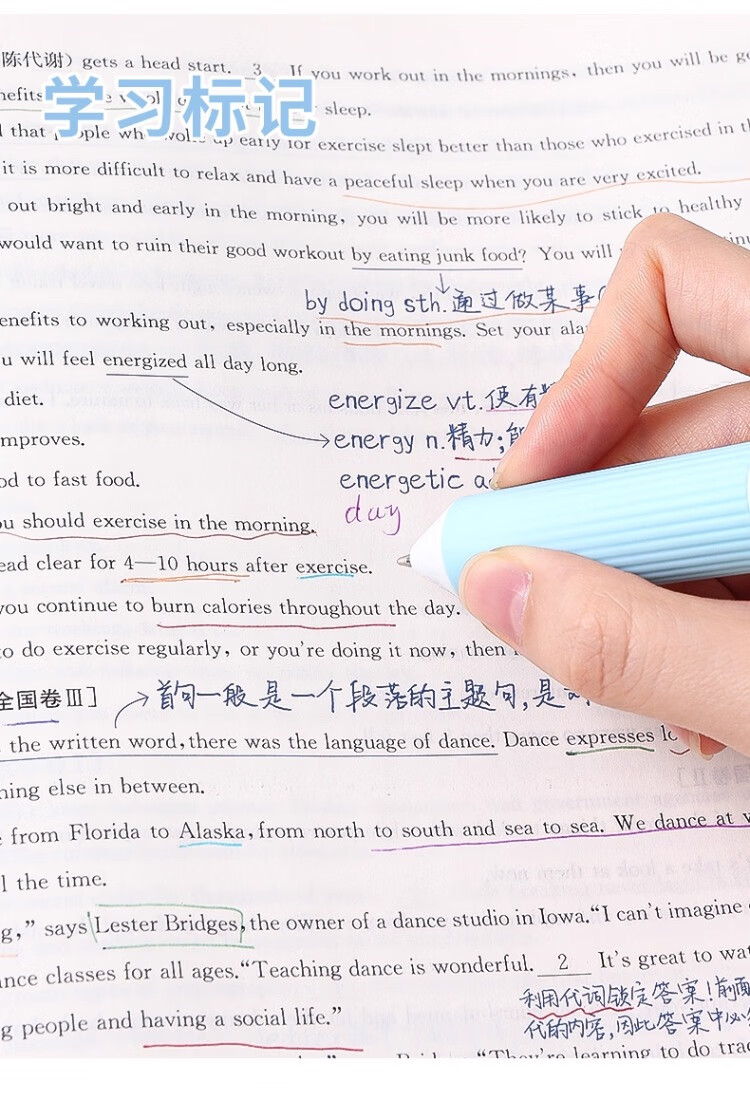 陈代谢) gets a head start. 3 If you work out in the mornings, then you will be
学习标记
sleep.
that people who woke up early for exercise slept better than those who exercised in
it is more difficult to relax and have a peaceful sleep when you are very excited.
out bright and early in the morning, you will be more likely to stick to healthy
would want to ruin their good workout by eating junk food? You will
by doing sth.通过做某事
enefits to working out, especially in the mornings. Set your
u will feel energized all day long.
diet.
energize vt.使有
mproves.
energy n.精力;
od to fast food.
energetic
ou should exercise in the morning.
day
ead clear for 4—10 hours after exercise.
you continue to burn calories throughout the day.
to do exercise regularly, or you're doing it now, then
全国卷Ⅲ]
首句一般是一个段落的主题句,是
the written word, there was the language of dance. Dance expresses
hing else in between.
from Florida to Alaska, from north to south and sea to sea. We dance at
l the time.
g,” says Lester Bridges, the owner of a dance studio in Iowa.“I can't imagine
nce classes for all ages.“Teaching dance is wonderful. 2 It's great to
利用代词锁定答案!前面
g people and having a social life.”
代的内容,因此答案中必
“They're learning to do